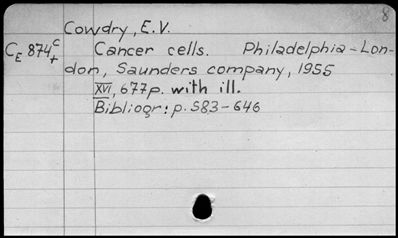 8
Cowdry, E.V.
CE 874c+ Cancer cells. Philadelphia-Lon-
don, Saunders company, 1955
XVI, 677p. with ill.
Bibliogr: p. 583-646